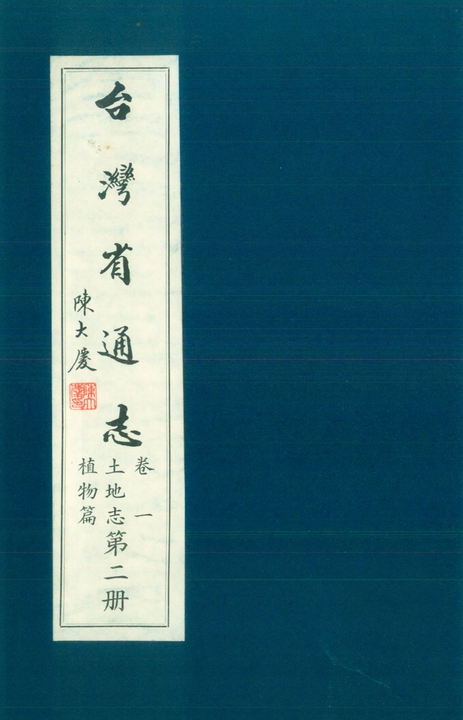 台灣省通志
卷一
土地志
植物篇
第二册
陳大慶